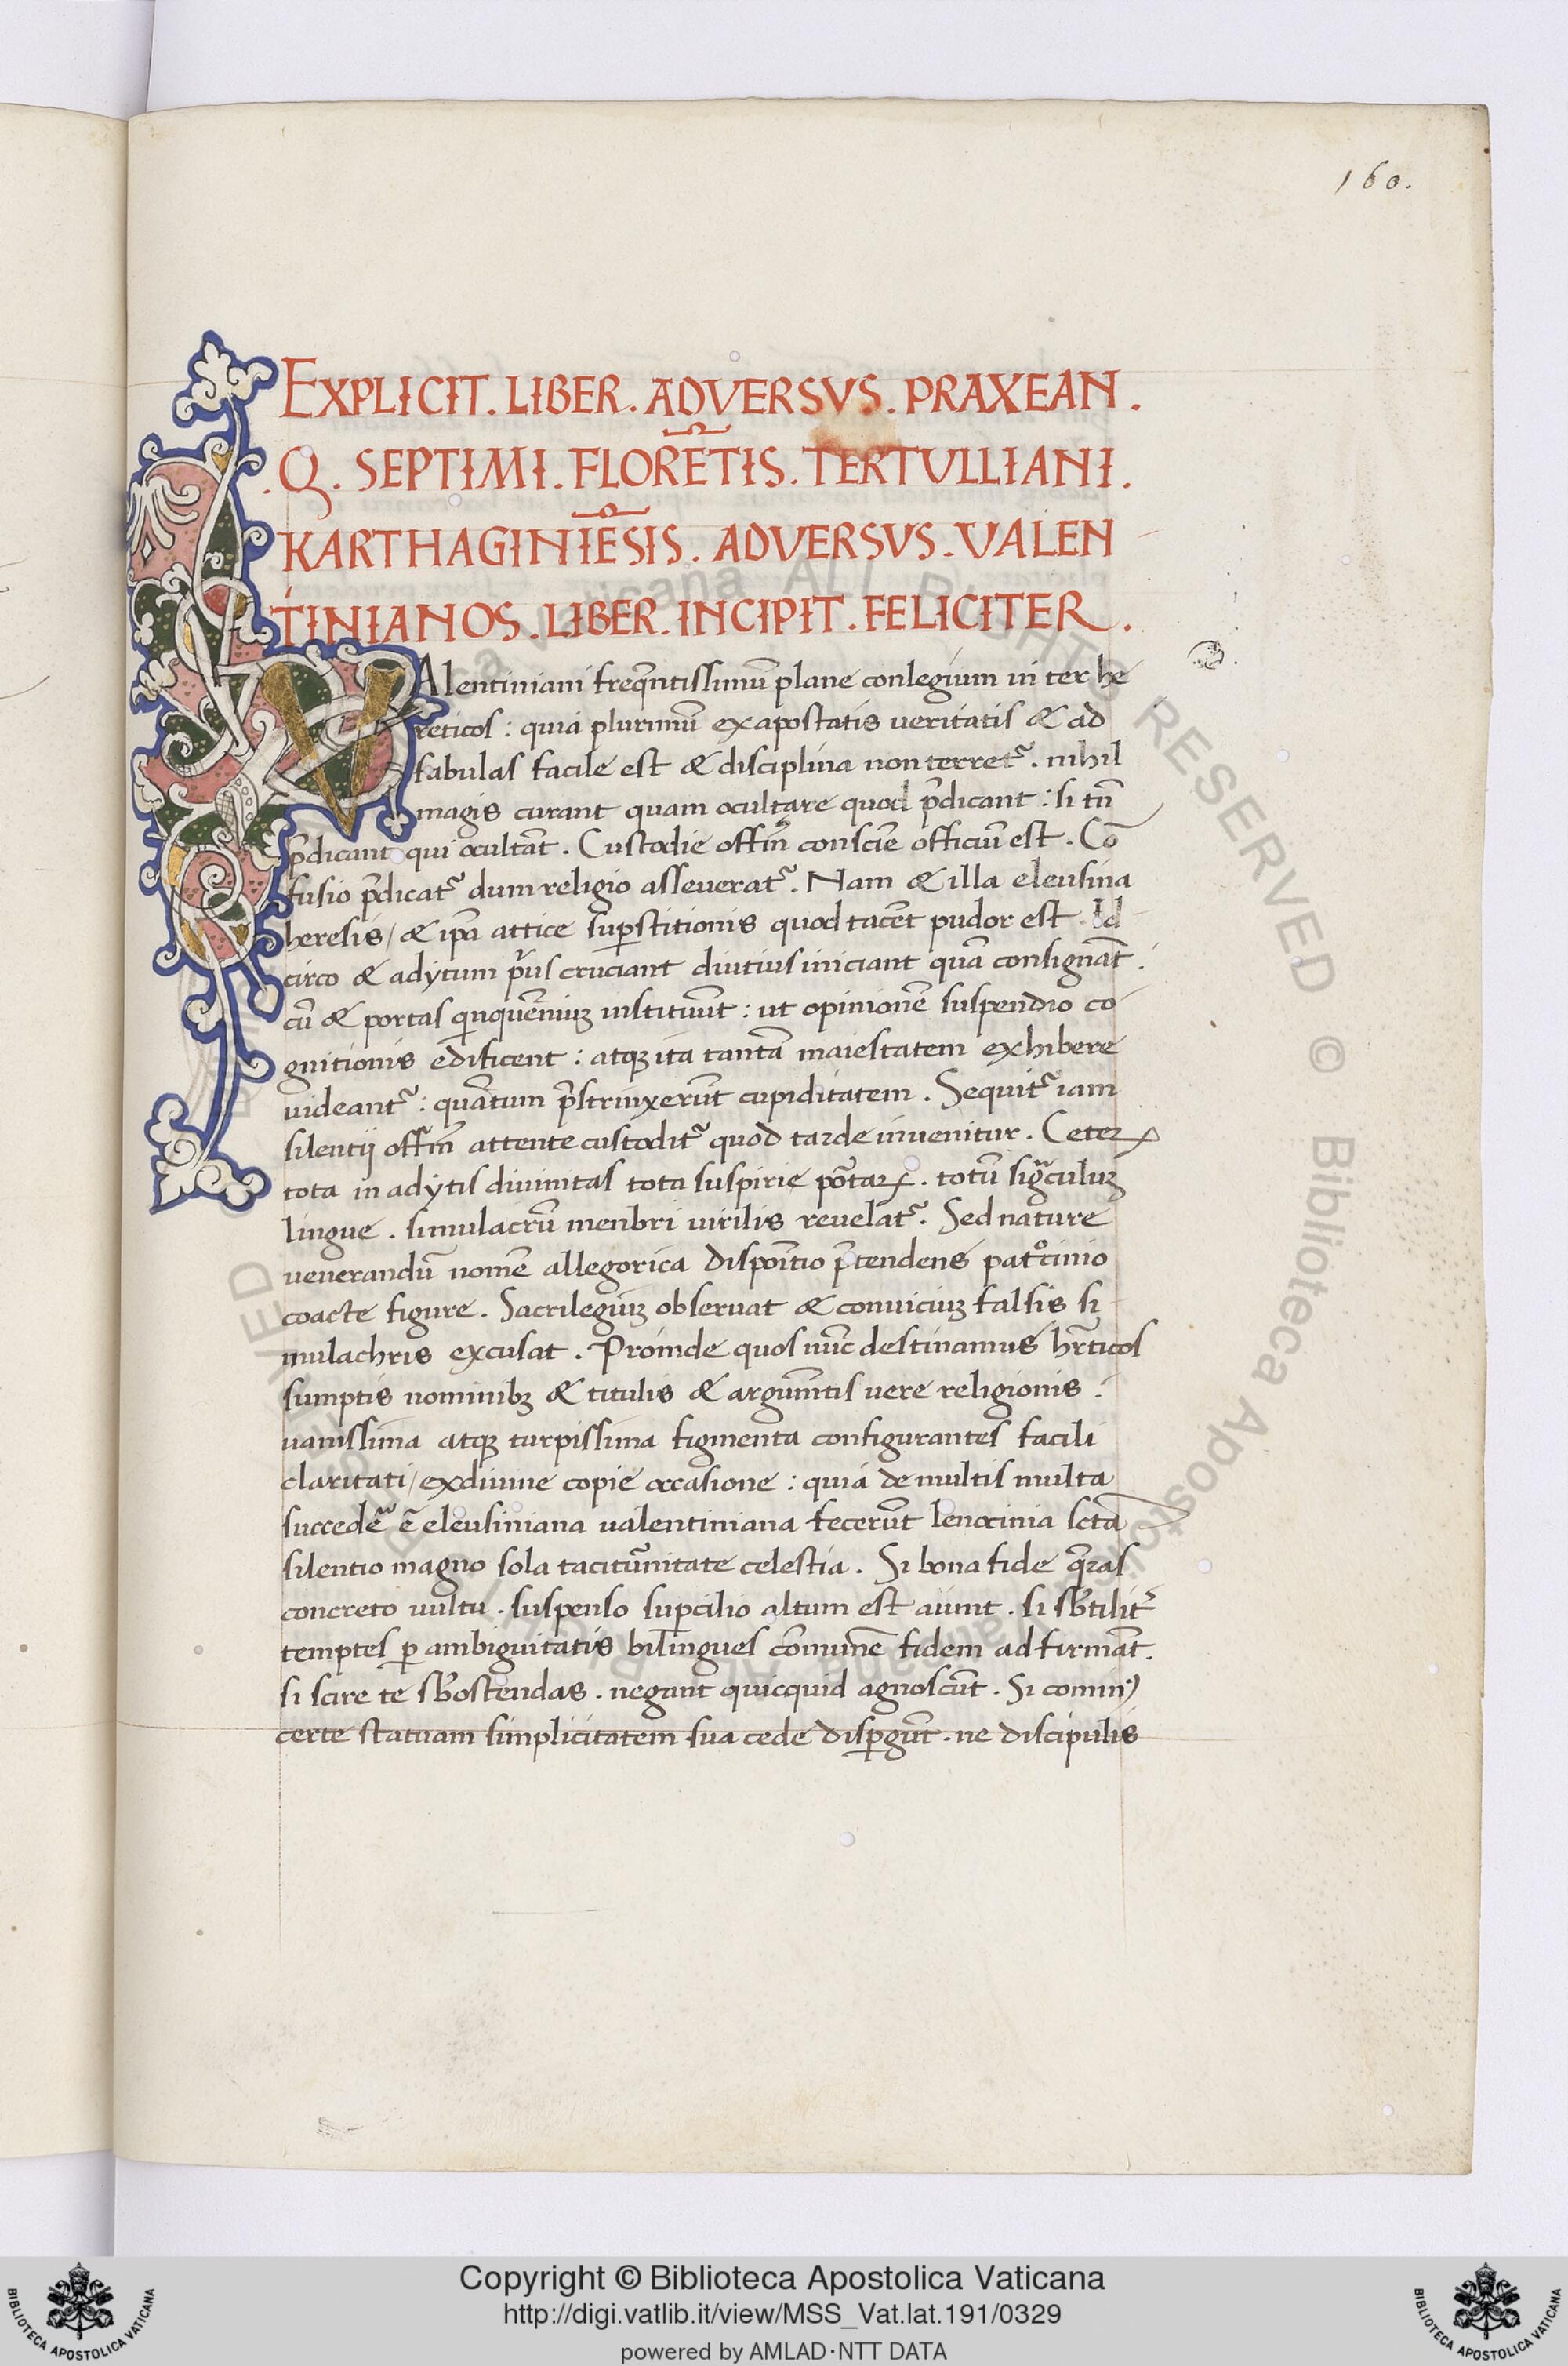 160.
EXPLICIT. LIBER. ADVERSVS. PRAXEAN.
.Q. SEPTIMI. FLORE͂TIS. TERTULLIANI.
KARTHAGINIE͂SIS. ADVERSVS. VALEN
TINIANOS. LIBER. INCIPIT. FELICITER.
VAlentiniani freq̄ntissimū plane conlegium in ter he
reticos : quia plurimū ex apostatis veritatis & ad
fabulas facile est & disciplina non terret᷑. nihil
magis curant quam ocultare quod p̄dicant : si tn̄
p̄dicant qui ocultāt. Custodie offm̄ conscīe officiū est. Cō
fusio p̄dicat᷑ dum religio asseverat᷑. Nam & illa eleusina
heresis / & ip̄a attice suꝑstitionis quod tacēt pudor est. Id
circo & adytum pͥus cruciant diutius iniciant quā consignāt.
cū & portas qͥnquēniuꝫ instituūt : ut opinionē suspendio co
gnitionis edificent : atqꝫ ita tantā maiestatem exhibere
videant᷑ : quātum p̄strinxerūt cupiditatem. Sequit᷑ iam
silentij offm̄ attente custodit᷑ quod tarde invenitur. Ceteꝝ
tota in adytis divinitas tota suspirie poͤtaꝝ. totū sigᷓculuꝫ
lingue. simulacrū menbri virilis revelat᷑. Sed nature
venerandū nomē allegorica dispoītio p̄tendens patͦcinio
coacte figure. Sacrilegiuꝫ observat & conviciuꝫ falsis si
mulachris excusat. Proinde quos nūc destinamus hr̄ticos
sumptis nominibꝫ & titulis & argum̄tis vere religionis :
vanissima atqꝫ turpissima figmenta configurantes facili
claritati / ex divine copie occasione : quia de multis multa
succedeᷓ ē eleusiniana valentiniana fecerūt lenocinia sctā
silentio magno sola tacitᷣnitate celestia. Si bona fide q̄ras
concreto vultu. suspenso suꝑcilio altum est aiunt. si sb̄tilit᷑
temptes ꝑ ambiguitatis bilingues cōmunē fidem ad firmāt.
si scire te sb̄ostendas. negant quicquid agnoscūt. Si comīꝰ
certe statuam simplicitatem sua cede disꝑgūt. ne discipulis
Copyright © Biblioteca Apostolica Vaticana
http://digi.vatlib.it/view/MSS_Vat.lat.191/0329
powered by AMLAD·NTT DATA
BIBLIOTECA APOSTOLICA VATICANA
BIBLIOTECA APOSTOLICA VATICANA